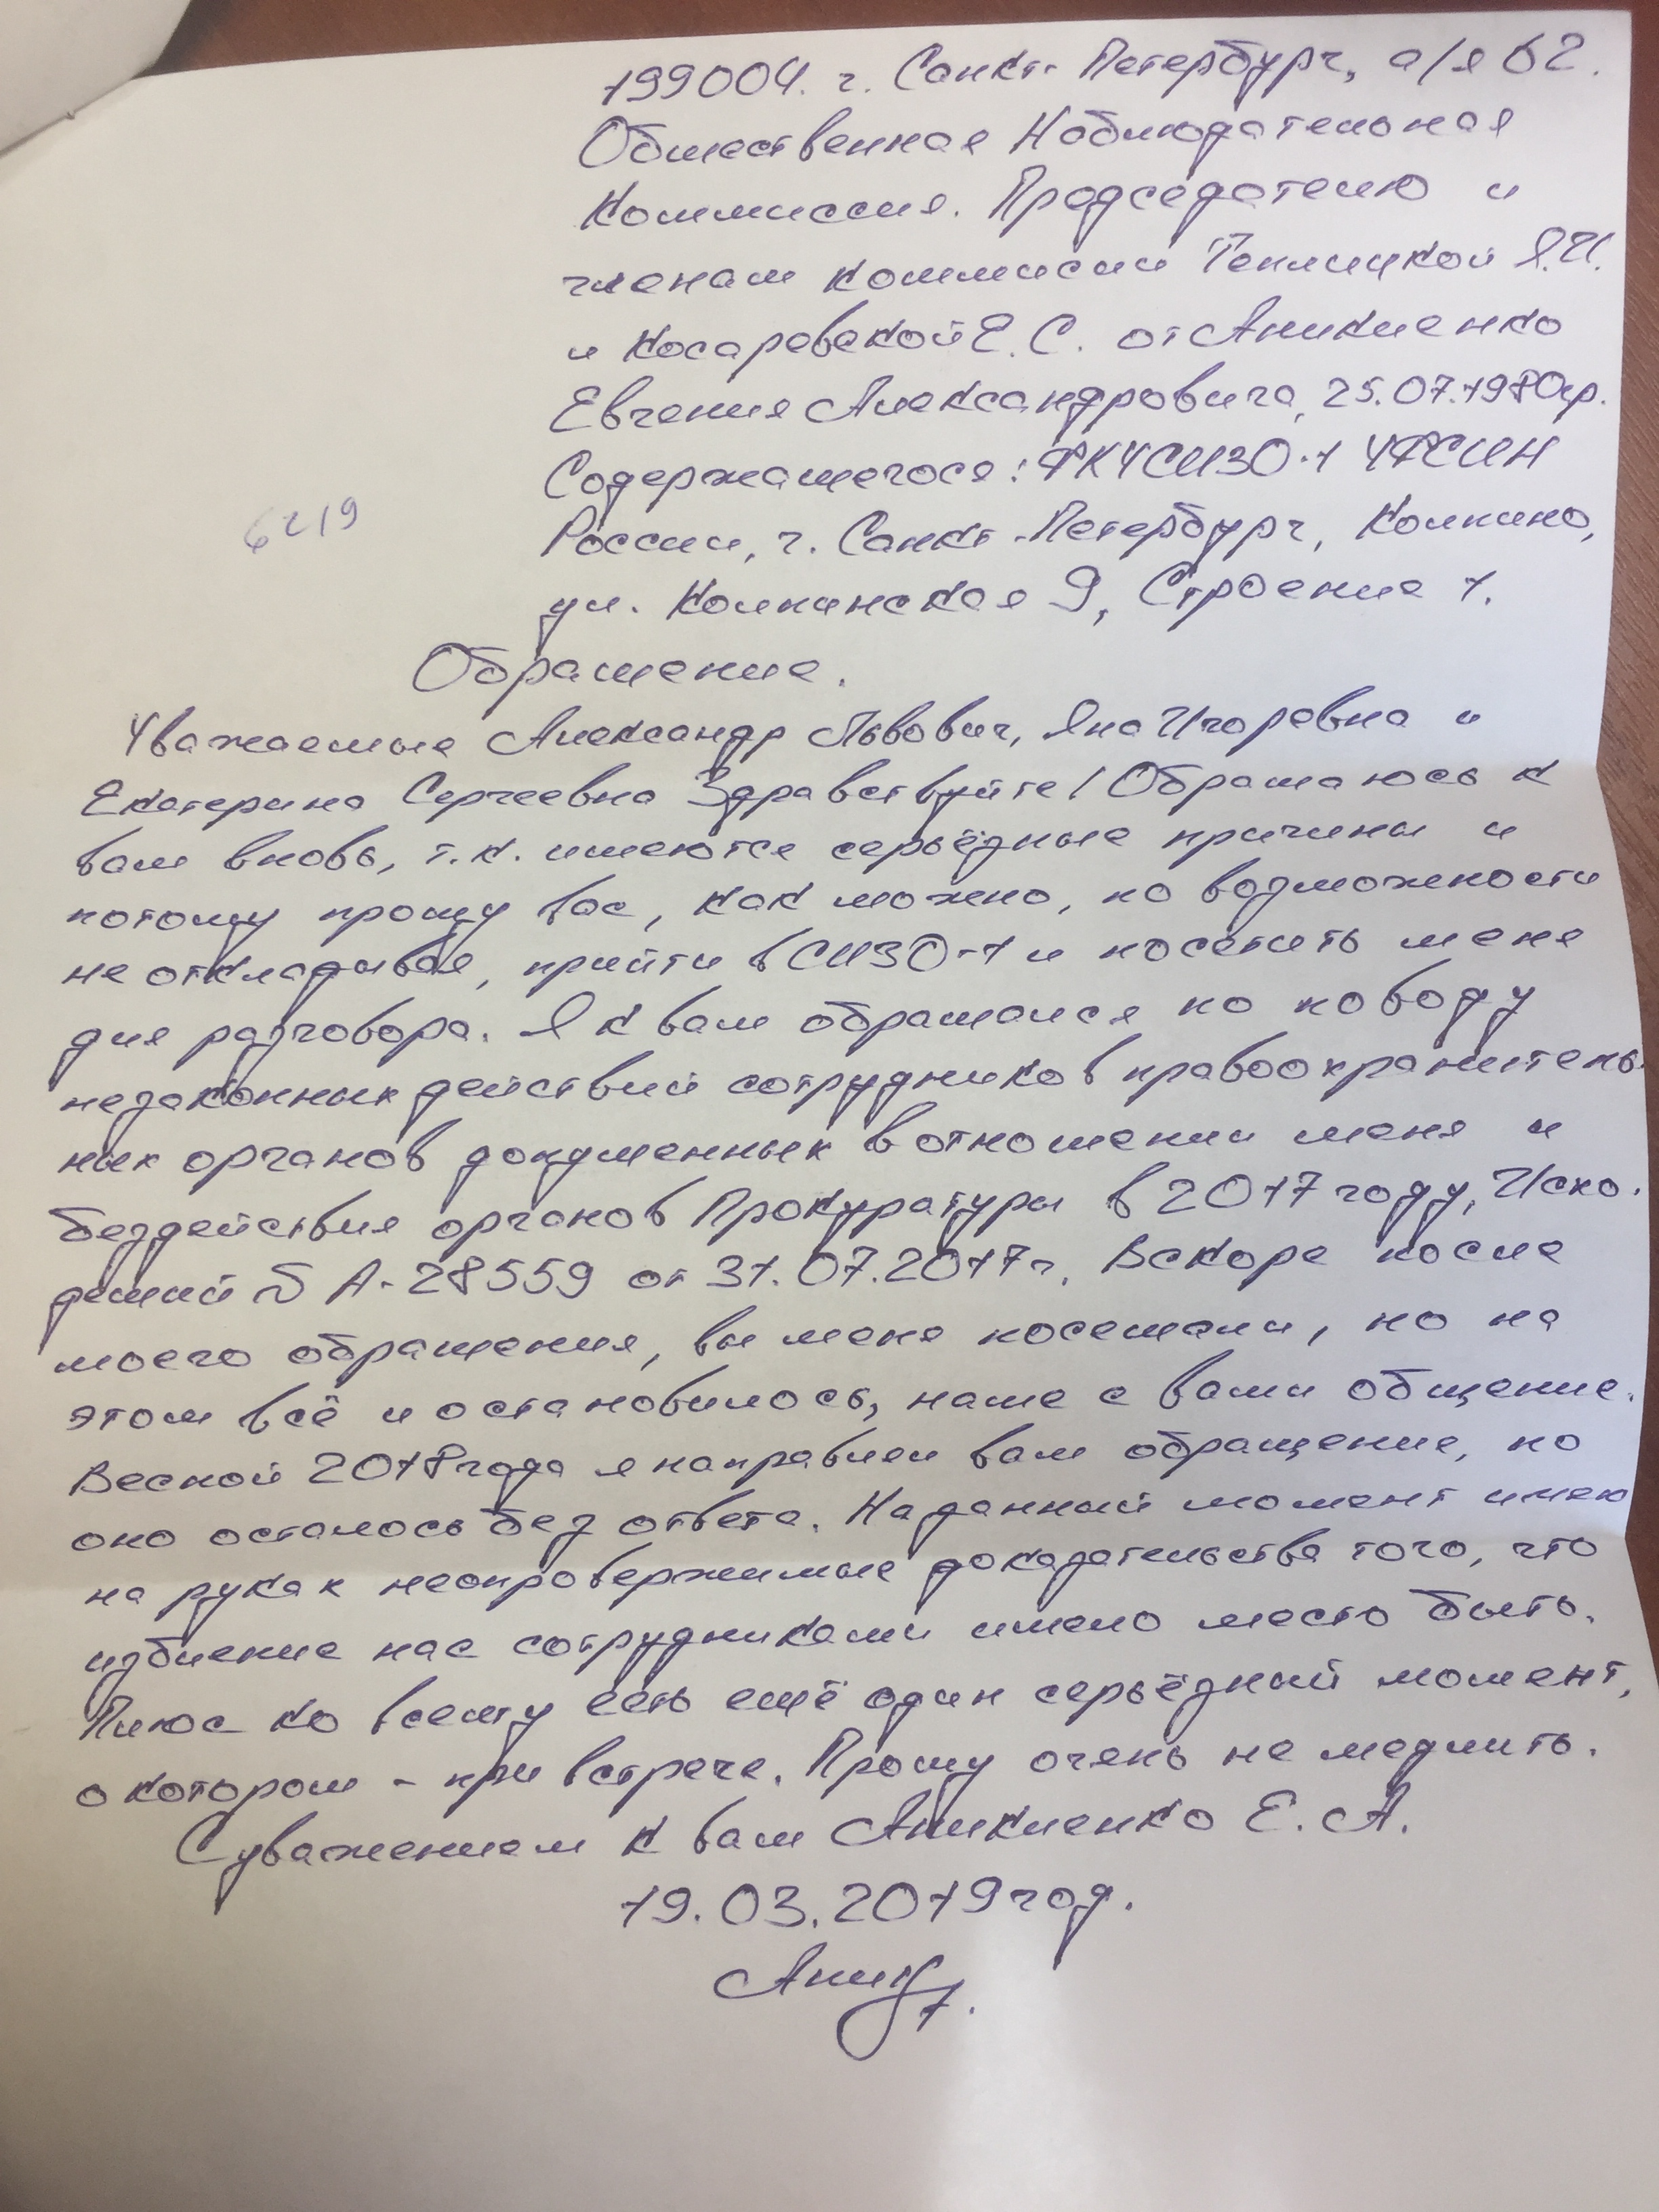 199004. г. Санкт-Петербург, а/я 62.
Общественная Наблюдательная
Коммиссия. Председателю и
членам коммисии Теплицкой Я.И.
и Косаревской Е.С. от Аникиенко
Евгения Александровича, 25.07.1980гр.
Содержащегося: ФКУ СИЗО-1 УФСИН
России, г. Санкт-Петербург, Колпино,
6219
ул. Колпинская 9, Строение 1.
Обращение.
Уважаемые Александр Львович, Яна Игоревна и
Екатерина Сергеевна Здравствуйте! Обращаюсь к
вам вновь, т.к. имеются серьёзные причины и
потому прошу вас, как можно, по возможности
не откладывая, прийти в СИЗО-1 и посетить меня
для разговора. Я к вам обращался по поводу
незаконных действий сотрудников правоохранитель-
ных органов допущенных в отношении меня и
бездействия органов Прокуратуры в 2017 году, Исхо-
дящий А-28559 от 31.07.2017г. Вскоре после
моего обращения, вы меня посещали, но на
этом всё и остановилось, наше с вами общение.
Весной 2018 года я направлял вам обращение, но
оно осталось без ответа. На данный момент имею
на руках неопровержимые доказательства того, что
избиение нас сотрудниками имело место быть.
Плюс ко всему есть ещё один серьёзный момент,
о котором - при встрече. Прошу очень не медлить.
С уважением к вам Аникиенко Е.А.
19.03.2019 год.